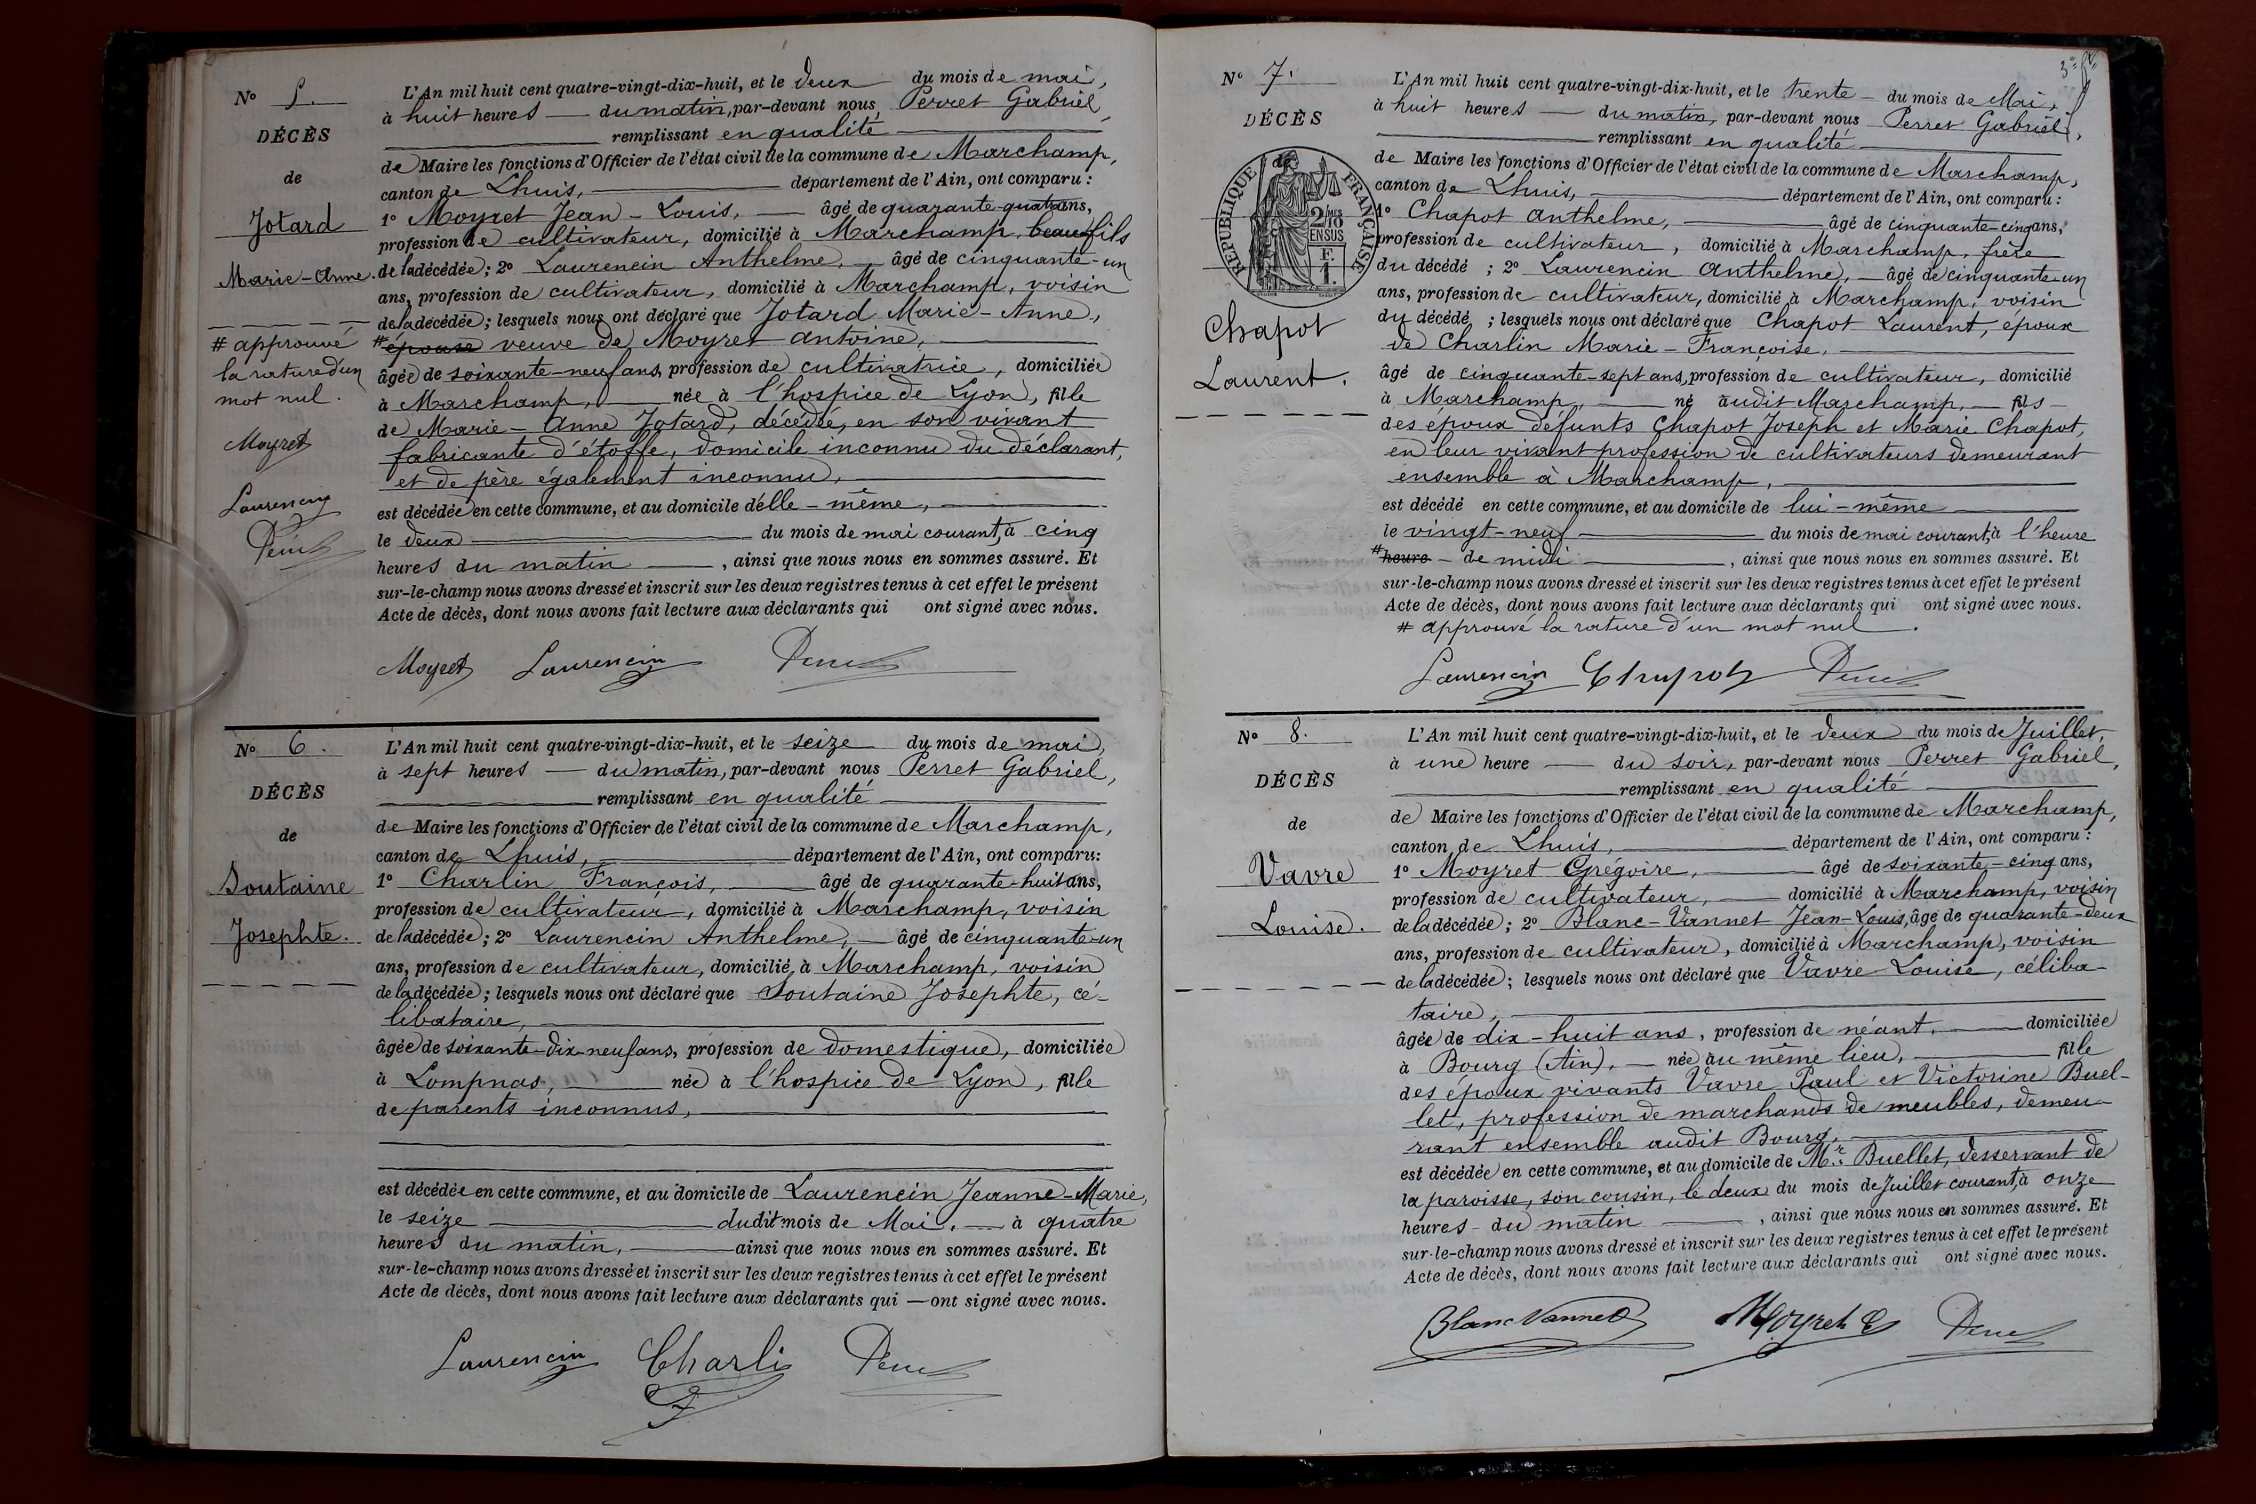 N° 5.
DÉCÈS
de
Jotard
Marie-Anne.
# approuvé
la rature d'un
mot nul.
Moyret
Laurencin
L'An mil huit cent quatre-vingt-dix-huit, et le deux du mois de mai,
à huit heures du matin, par-devant nous Perret Gabriel,
remplissant en qualité
de Maire les fonctions d'Officier de l'état civil de la commune de Marchamp,
canton de Lhuis, département de l'Ain, ont comparu :
1° Moyret Jean-Louis, âgé de quarante-quatre ans,
profession de cultivateur, domicilié à Marchamp, beau-fils
de la décédée ; 2° Laurencin Anthelme, âgé de cinquante-un
ans, profession de cultivateur, domicilié à Marchamp, voisin
de la décédée ; lesquels nous ont déclaré que Jotard Marie-Anne,
# épouse veuve de Moyret Antoine,
âgée de soixante-neuf ans, profession de cultivatrice, domiciliée
à Marchamp, née à l'hospice de Lyon, fille
de Marie-Anne Jotard, décédée, en son vivant
fabricante d'étoffe, domicile inconnu du déclarant,
et de père également inconnu,
est décédée en cette commune, et au domicile d'elle-même,
le deux du mois de mai courant, à cinq
heures du matin, ainsi que nous nous en sommes assuré. Et
sur-le-champ nous avons dressé et inscrit sur les deux registres tenus à cet effet le présent
Acte de décès, dont nous avons fait lecture aux déclarants qui ont signé avec nous.
Moyret Laurencin Perret
N° 6.
DÉCÈS
de
Soutaine
Josephte.
L'An mil huit cent quatre-vingt-dix-huit, et le seize du mois de mai,
à sept heures du matin, par-devant nous Perret Gabriel,
remplissant en qualité
de Maire les fonctions d'Officier de l'état civil de la commune de Marchamp,
canton de Lhuis, département de l'Ain, ont comparu :
1° Charlin François, âgé de quarante-huit ans,
profession de cultivateur, domicilié à Marchamp, voisin
de la décédée ; 2° Laurencin Anthelme, âgé de cinquante-un
ans, profession de cultivateur, domicilié à Marchamp, voisin
de la décédée ; lesquels nous ont déclaré que Soutaine Josephte, cé-
libataire,
âgée de soixante-dix-neuf ans, profession de domestique, domiciliée
à Lompnas, née à l'hospice de Lyon, fille
de parents inconnus,
est décédée en cette commune, et au domicile de Laurencin Jeanne-Marie,
le seize dudit mois de Mai, à quatre
heures du matin, ainsi que nous nous en sommes assuré. Et
sur-le-champ nous avons dressé et inscrit sur les deux registres tenus à cet effet le présent
Acte de décès, dont nous avons fait lecture aux déclarants qui ont signé avec nous.
Laurencin Charlin Perret
N° 7.
DÉCÈS
RÉPUBLIQUE FRANÇAISE
2/10 EN SUS
F. 1.
Chapot
Laurent.
L'An mil huit cent quatre-vingt-dix-huit, et le trente du mois de Mai,
à huit heures du matin, par-devant nous Perret Gabriel,
remplissant en qualité
de Maire les fonctions d'Officier de l'état civil de la commune de Marchamp,
canton de Lhuis, département de l'Ain, ont comparu :
1° Chapot Anthelme, âgé de cinquante-cinq ans,
profession de cultivateur, domicilié à Marchamp, frère
du décédé ; 2° Laurencin Anthelme, âgé de cinquante-un
ans, profession de cultivateur, domicilié à Marchamp, voisin
du décédé ; lesquels nous ont déclaré que Chapot Laurent, époux
de Charlin Marie-Françoise,
âgé de cinquante-sept ans, profession de cultivateur, domicilié
à Marchamp, né audit Marchamp, fils
des époux défunts Chapot Joseph et Marie Chapot,
en leur vivant profession de cultivateurs demeurant
ensemble à Marchamp,
est décédé en cette commune, et au domicile de lui-même
le vingt-neuf du mois de mai courant, à l'heure
# heure de midi, ainsi que nous nous en sommes assuré. Et
sur-le-champ nous avons dressé et inscrit sur les deux registres tenus à cet effet le présent
Acte de décès, dont nous avons fait lecture aux déclarants qui ont signé avec nous.
# approuvé la rature d'un mot nul.
Laurencin Chapot Perret
N° 8.
DÉCÈS
de
Vavre
Louise.
L'An mil huit cent quatre-vingt-dix-huit, et le deux du mois de Juillet,
à une heure du soir, par-devant nous Perret Gabriel,
remplissant en qualité
de Maire les fonctions d'Officier de l'état civil de la commune de Marchamp,
canton de Lhuis, département de l'Ain, ont comparu :
1° Moyret Grégoire, âgé de soixante-cinq ans,
profession de cultivateur, domicilié à Marchamp, voisin
de la décédée ; 2° Blanc-Vannet Jean-Louis, âgé de quarante-deux
ans, profession de cultivateur, domicilié à Marchamp, voisin
de la décédée ; lesquels nous ont déclaré que Vavre Louise, céliba-
taire,
âgée de dix-huit ans, profession de néant, domiciliée
à Bourg (Ain), née au même lieu, fille
des époux vivants Vavre Paul et Victorine Buel-
let, profession de marchands de meubles, demeu-
rant ensemble audit Bourg,
est décédée en cette commune, et au domicile de Mr. Buellet, desservant de
la paroisse, son cousin, le deux du mois de Juillet courant, à onze
heures du matin, ainsi que nous nous en sommes assuré. Et
sur-le-champ nous avons dressé et inscrit sur les deux registres tenus à cet effet le présent
Acte de décès, dont nous avons fait lecture aux déclarants qui ont signé avec nous.
Blanc Vannet Moyret G Perret